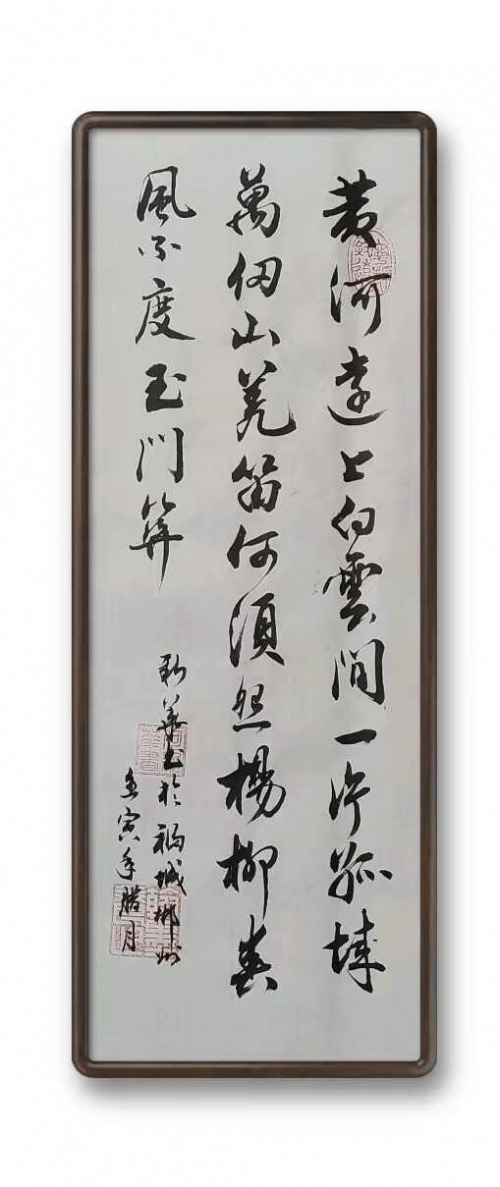 黄河遠上白雲間一片孤城
萬仞山羌笛何須怨楊柳春
風不度玉門
華書於福城郴州
壬寅年腊月